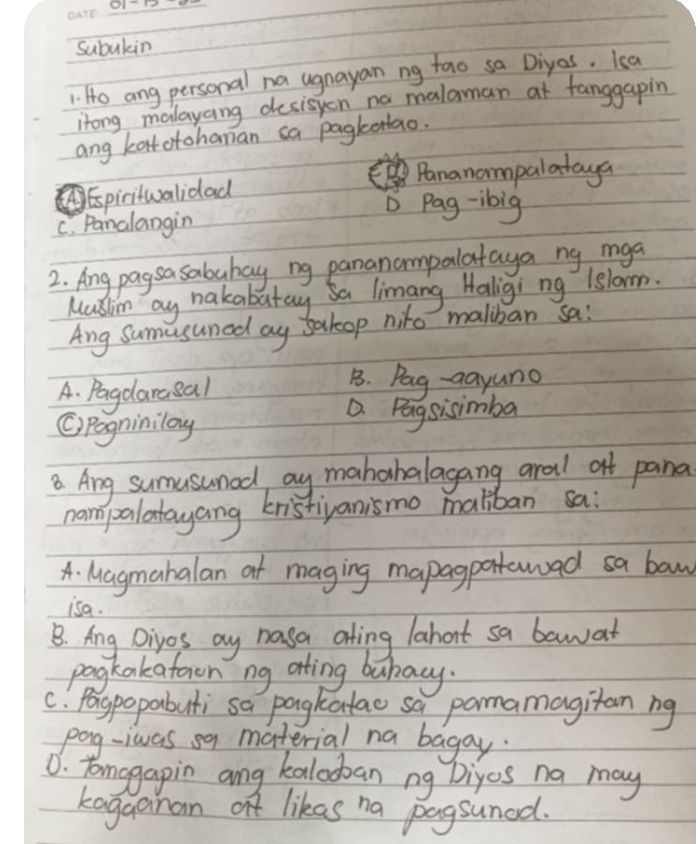 DATE: 01-15-
Subukin
1. Ito ang personal na ugnayan ng tao sa Diyos. Isa
itong malayang desisyon na malaman at tanggapin
ang katotohanan sa pagkatao.
(A) Espiritwalidad B Pananampalataya
C. Panalangin D Pag-ibig
2. Ang pagsasabuhay ng pananampalataya ng mga
Muslim ay nakabatay sa limang Haligi ng Islam.
Ang sumusunod ay sakop nito maliban sa:
A. Pagdarasal B. Pag-aayuno
(C) Pagninilay D. Pagsisimba
3. Ang sumusunod ay mahahalagang aral at pana
nampalatayang kristiyanismo maliban sa:
A. Magmahalan at maging mapagpatawad sa baw
isa.
B. Ang Diyos ay nasa ating lahat sa bawat
pagkakataon ng ating buhay.
C. Pagpapabuti sa pagkatao sa pamamagitan ng
pag-iwas sa material na bagay.
D. Tanggapin ang kalooban ng Diyos na may
kagaanan at likas na pagsunod.